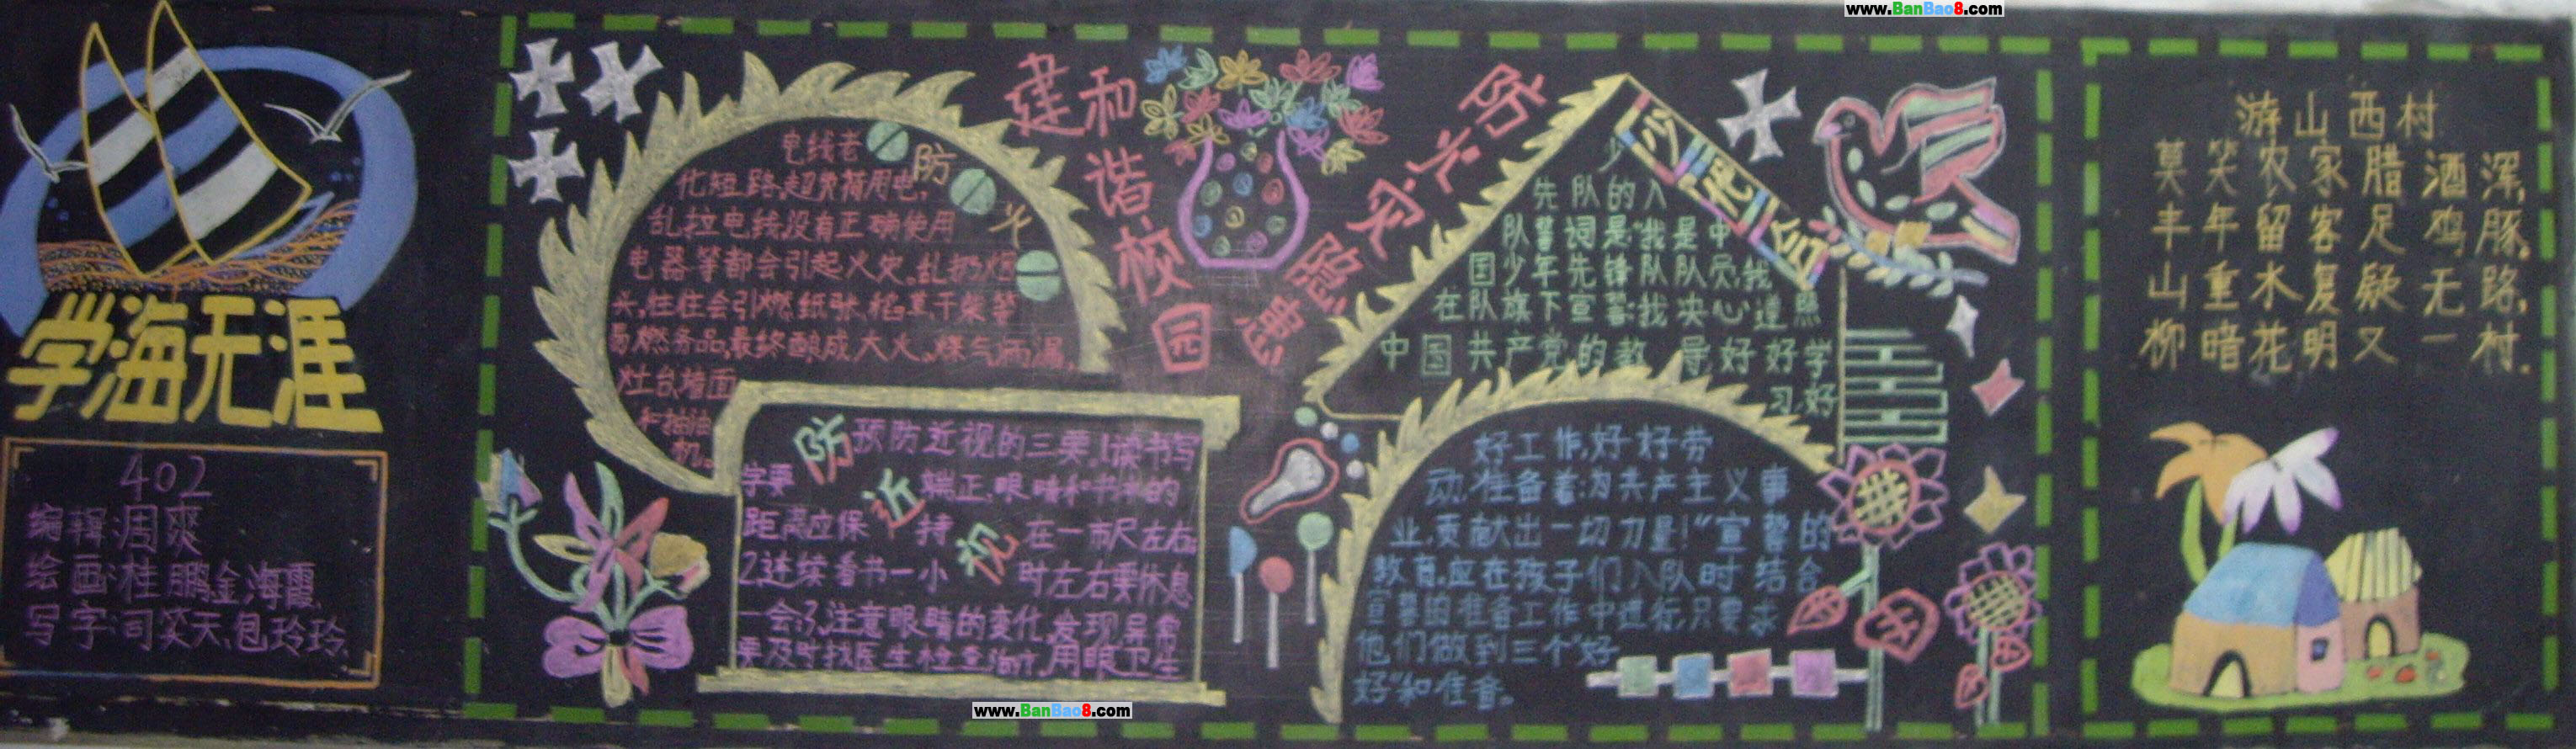 www.BanBao8.com
学海无涯
402
编辑:周爽
绘画:桂鹏,金海霞
写字:司笑天,包玲玲
建和谐校园
防火灾隐患
防火
电线老
化短路,超负荷用电,
乱拉电线,没有正确使用
电器等都会引起火灾。乱扔烟
头,往往会引燃纸张、稻草、干柴等
易燃务品,最终酿成大火。煤气泄漏,
灶台墙面
和抽油
机。
防近视
预防近视的三要,1.读书写
字要端正,眼睛和书本的
距离应保持在一市尺左右。
2.连续看书一小时左右要休息
一会;3.注意眼睛的变化,发现异常
要及时找医生检查治疗,用眼卫生
少代会
少
先队的入
队誓词是:“我是中
国少年先锋队队员,我
在队旗下宣誓:我决心遵照
中国共产党的教导,好好学
习,好
好工作,好好劳
动,准备着:为共产主义事
业,贡献出一切力量!”宣誓的
教育,应在孩子们入队时结合
宣誓的准备工作中进行,只要求
他们做到三个“好
好”和准备。
游山西村
莫笑农家腊酒浑,
丰年留客足鸡豚。
山重水复疑无路,
柳暗花明又一村.
www.BanBao8.com